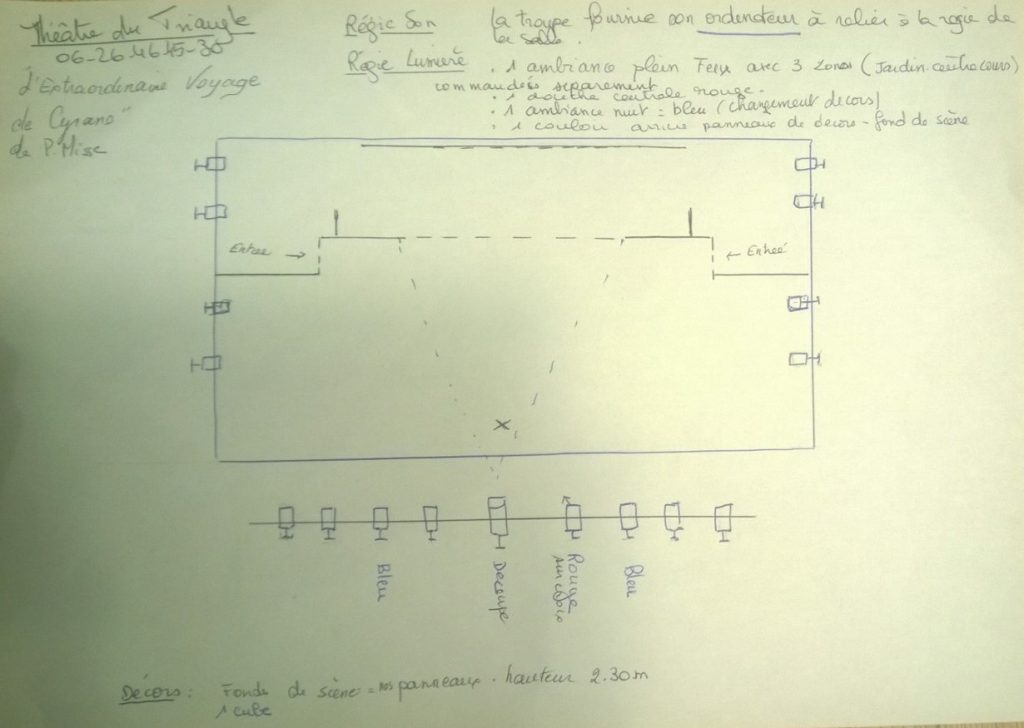 Théâtre du Triangle
06-26-46-45-30
"l'Extraordinaire Voyage
de Cyrano"
de P. Misse
Régie Son
La troupe fournie son ordenateur à relier à la régie de
la salle.
Régie Lumière
. 1 ambiance plein Feux avec 3 zones (Jardin-centre cours)
commandées séparement
. 1 douche centrale rouge.
. 1 ambiance nuit = bleu (changement decors)
. 1 couloir arrière panneaux de decors - fond de scène
Entrée →
← Entrée
Bleu
Decoupe
Rouge
sur croix
Bleu
Décors : Fonds de scène = nos panneaux . hauteur 2.30m
1 cube